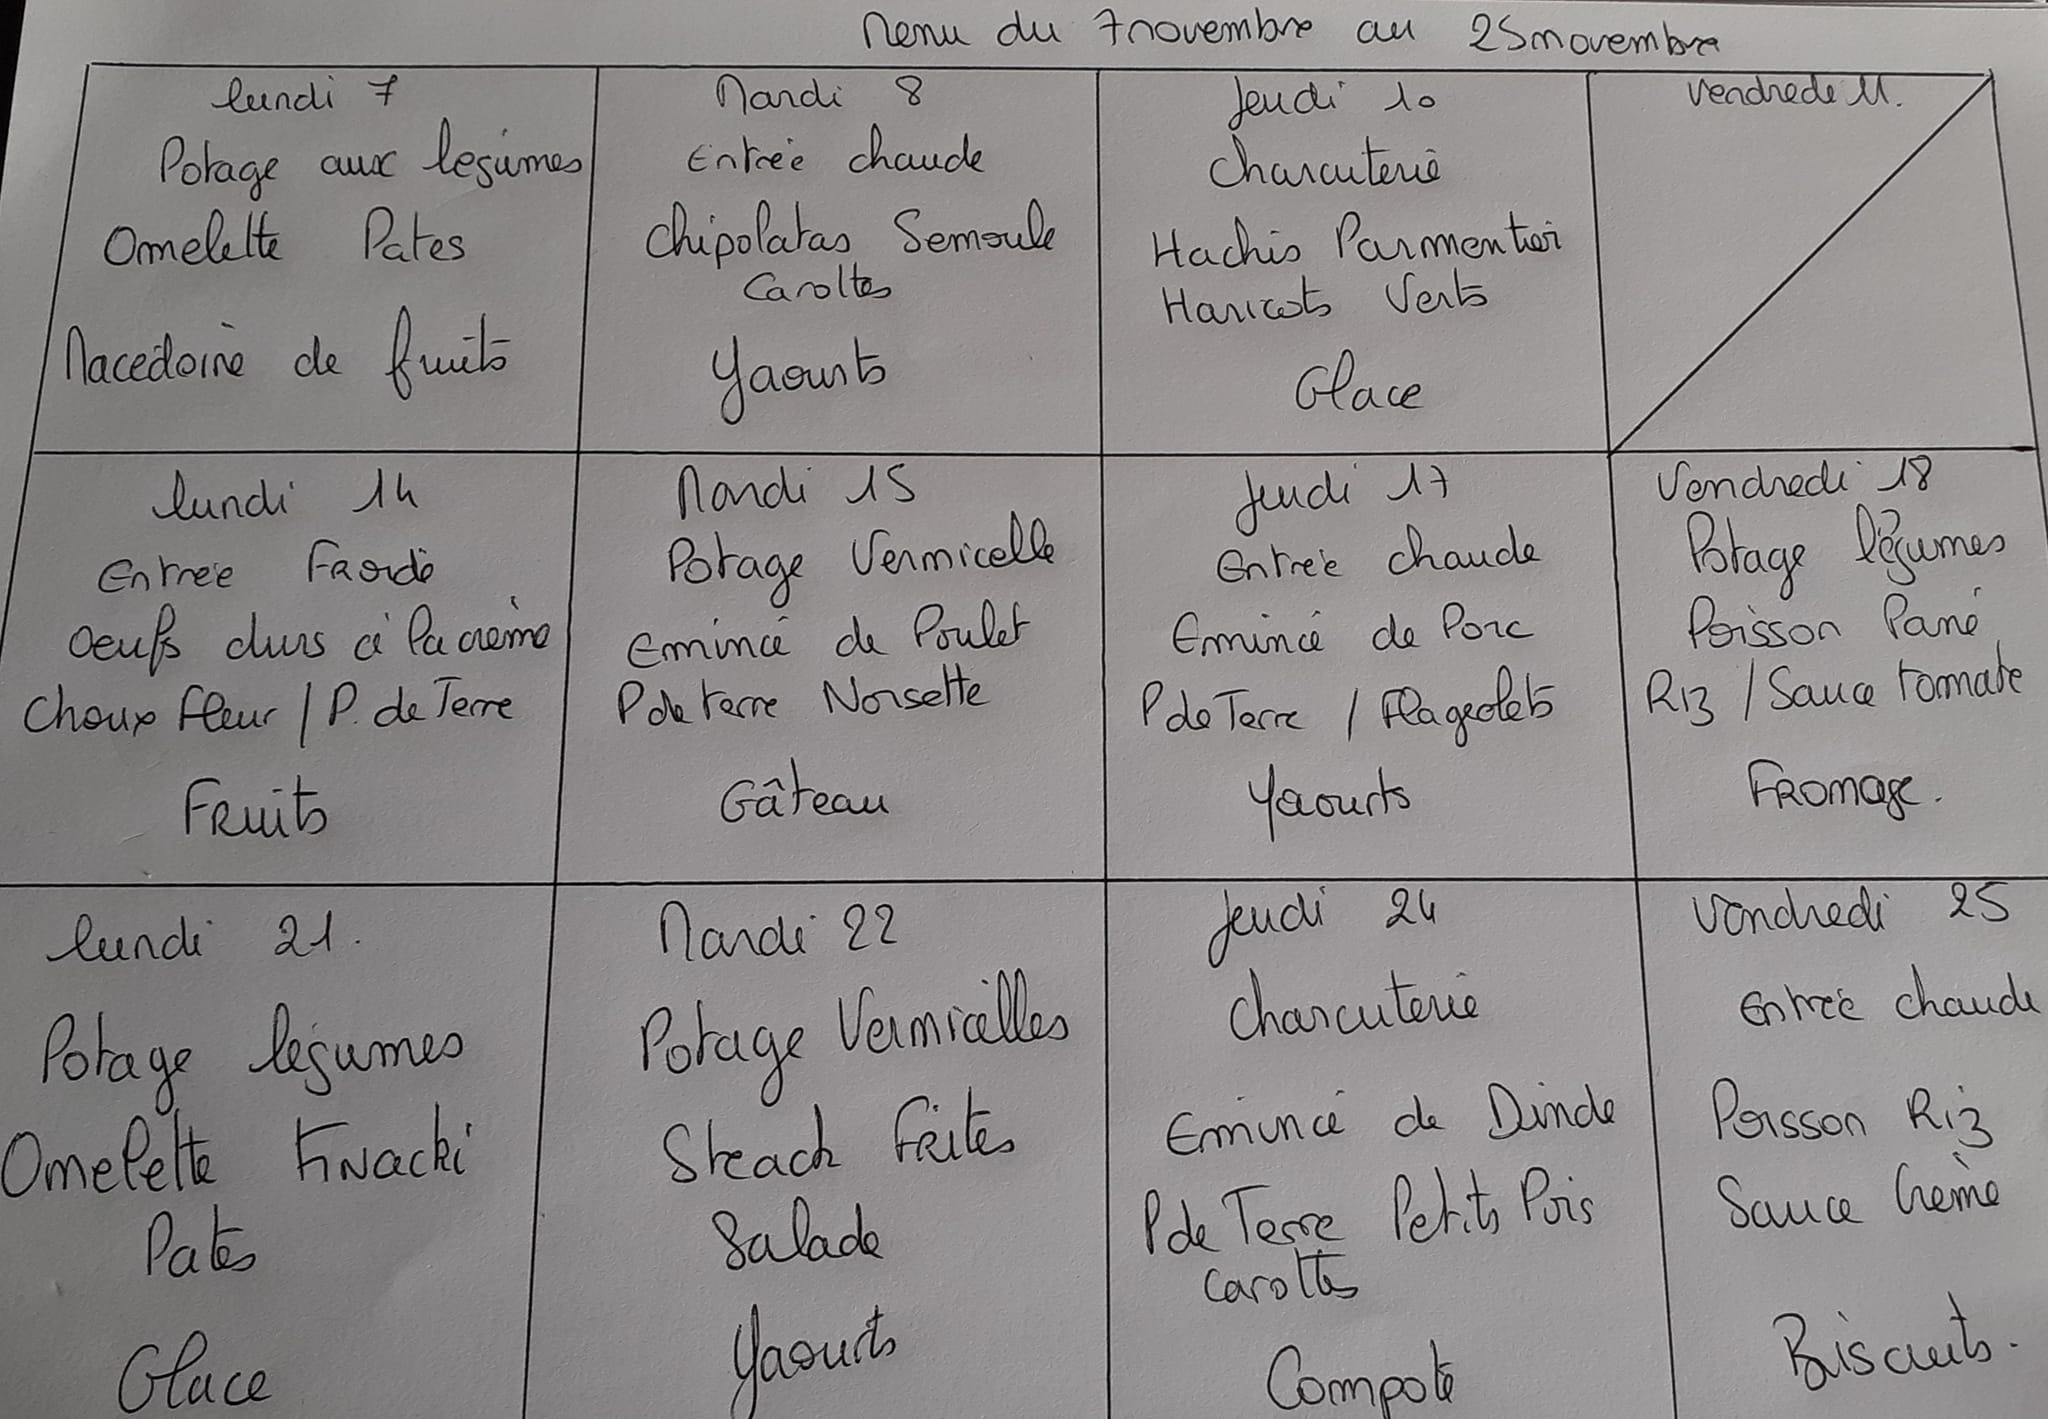 Menu du 7 novembre au 25 novembre
lundi 7
Potage aux legumes
Omelette Pates
Macédoine de fruits
Mardi 8
Entrée chaude
Chipolatas Semoule
Carottes
Yaourts
Jeudi 10
Charcuterie
Hachis Parmentier
Haricots Verts
Glace
Vendredi 11.
lundi 14
Entrée Froide
Oeufs durs à la crème
Choux fleur / P. de Terre
Fruits
Mardi 15
Potage Vermicelle
Emincé de Poulet
P de terre Noisette
Gâteau
Jeudi 17
Entrée chaude
Emincé de Porc
P de Terre / Flageolets
Yaourts
Vendredi 18
Potage légumes
Poisson Pané
Riz / Sauce tomate
Fromage.
lundi 21.
Potage légumes
Omelette Knacki
Pates
Glace
Mardi 22
Potage Vermicelles
Steack Frites
Salade
Yaourts
Jeudi 24
Charcuterie
Emincé de Dinde
P de Terre Petits Pois
Carottes
Compote
Vendredi 25
Entrée chaude
Poisson Riz
Sauce Crème
Biscuits.